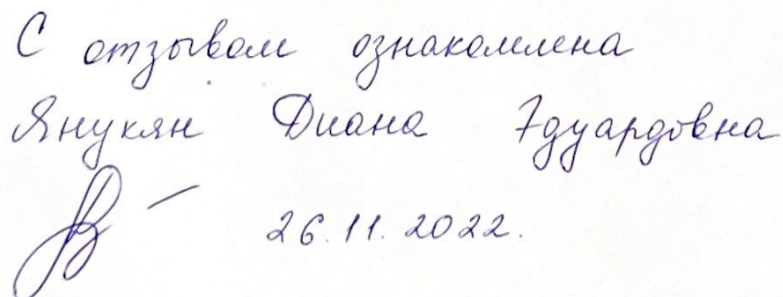 С отзывом ознакомлена
Янукян Диана Эдуардовна
26.11.2022.